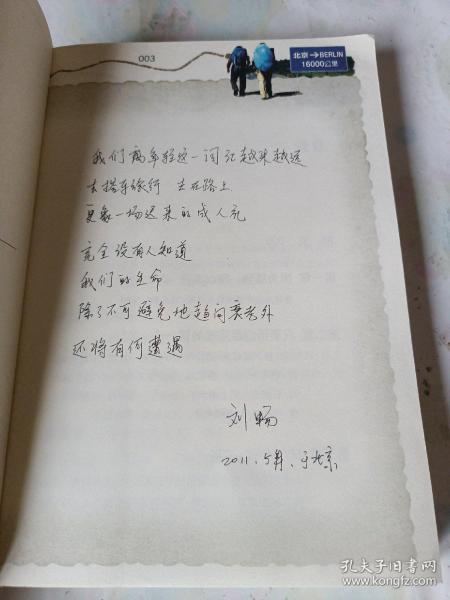 003
北京→BERLIN
16000公里
我们离年轻这一词已越来越远
去搭车旅行 走在路上
更象一场迟来的成人礼
完全没有人知道
我们的生命
除了不可避免地趋向衰老外
还将有何遭遇
刘畅
2011.5月.于北京
孔夫子旧书网
www.kongfz.com